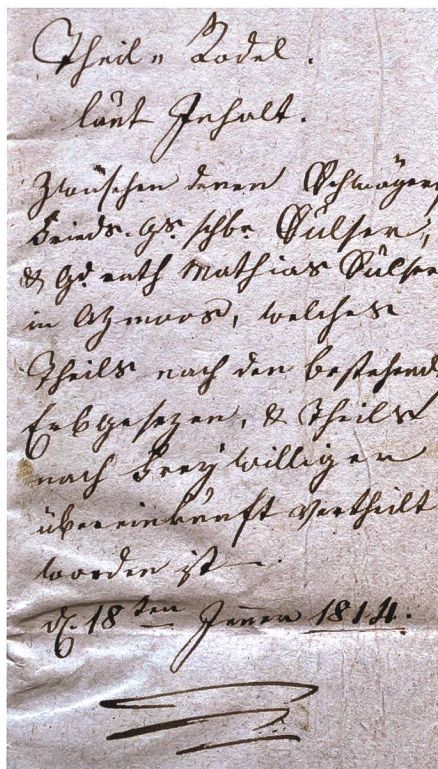 Theil = Rodel.
laut Inhalt.
Zwüschen denen Schwägern
Frieds. Gs. schbr. Sulser,
& Gd. rath Mathias Sulser
in Azmoos, welches
Theils nach den bestehend
Erbgesezen, & Theils
nach Freywilliger
übereinkunft vertheilt
worden ist.
d. 18ten Jenner 1814.